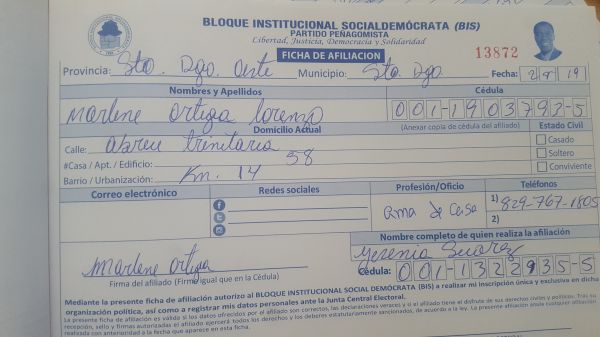 BLOQUE INSTITUCIONAL SOCIALDEMÓCRATA (BIS)
PARTIDO PEÑAGOMISTA
Libertad, Justicia, Democracia y Solidaridad
FICHA DE AFILIACIÓN
13872
Provincia: Sto. Dgo. Oeste Municipio: Sto. Dgo Fecha: 19
Nombres y Apellidos Cédula
Marlene Ortega Lorenzo 001-1903793-5
Domicilio Actual (Anexar copia de cédula del afiliado) Estado Civil
Calle: Abreu trinitaria Casado
#Casa / Apt. / Edificio: 58 Soltero
Barrio / Urbanización: Km. 14 Conviviente
Correo electrónico Redes sociales Profesión/Oficio Teléfonos
ama de casa 1) 829-767-1805
2)
Nombre completo de quien realiza la afiliación
Yesenia Suarez
Marlene Ortega Cédula: 001-1322935-5
Firma del afiliado (Firma igual que en la Cédula)
Mediante la presente ficha de afiliación autorizo al BLOQUE INSTITUCIONAL SOCIAL DEMÓCRATA (BIS) a realizar mi inscripción única y exclusiva en dicha
organización política, así como a registrar mis datos personales ante la Junta Central Electoral.
La presente ficha de afiliación es válida si los datos ofrecidos por el afiliado son correctos, las declaraciones veraces y si el afiliado tiene el disfrute de sus derechos civiles y políticos. Tras su
recepción, sello y firmas autorizadas el afiliado ejercerá todos los derechos y los deberes estatutariamente sancionados, de acuerdo a la ley. La presente afiliación anula cualquier afiliación
realizada con anterioridad a la fecha que aparece en esta ficha.